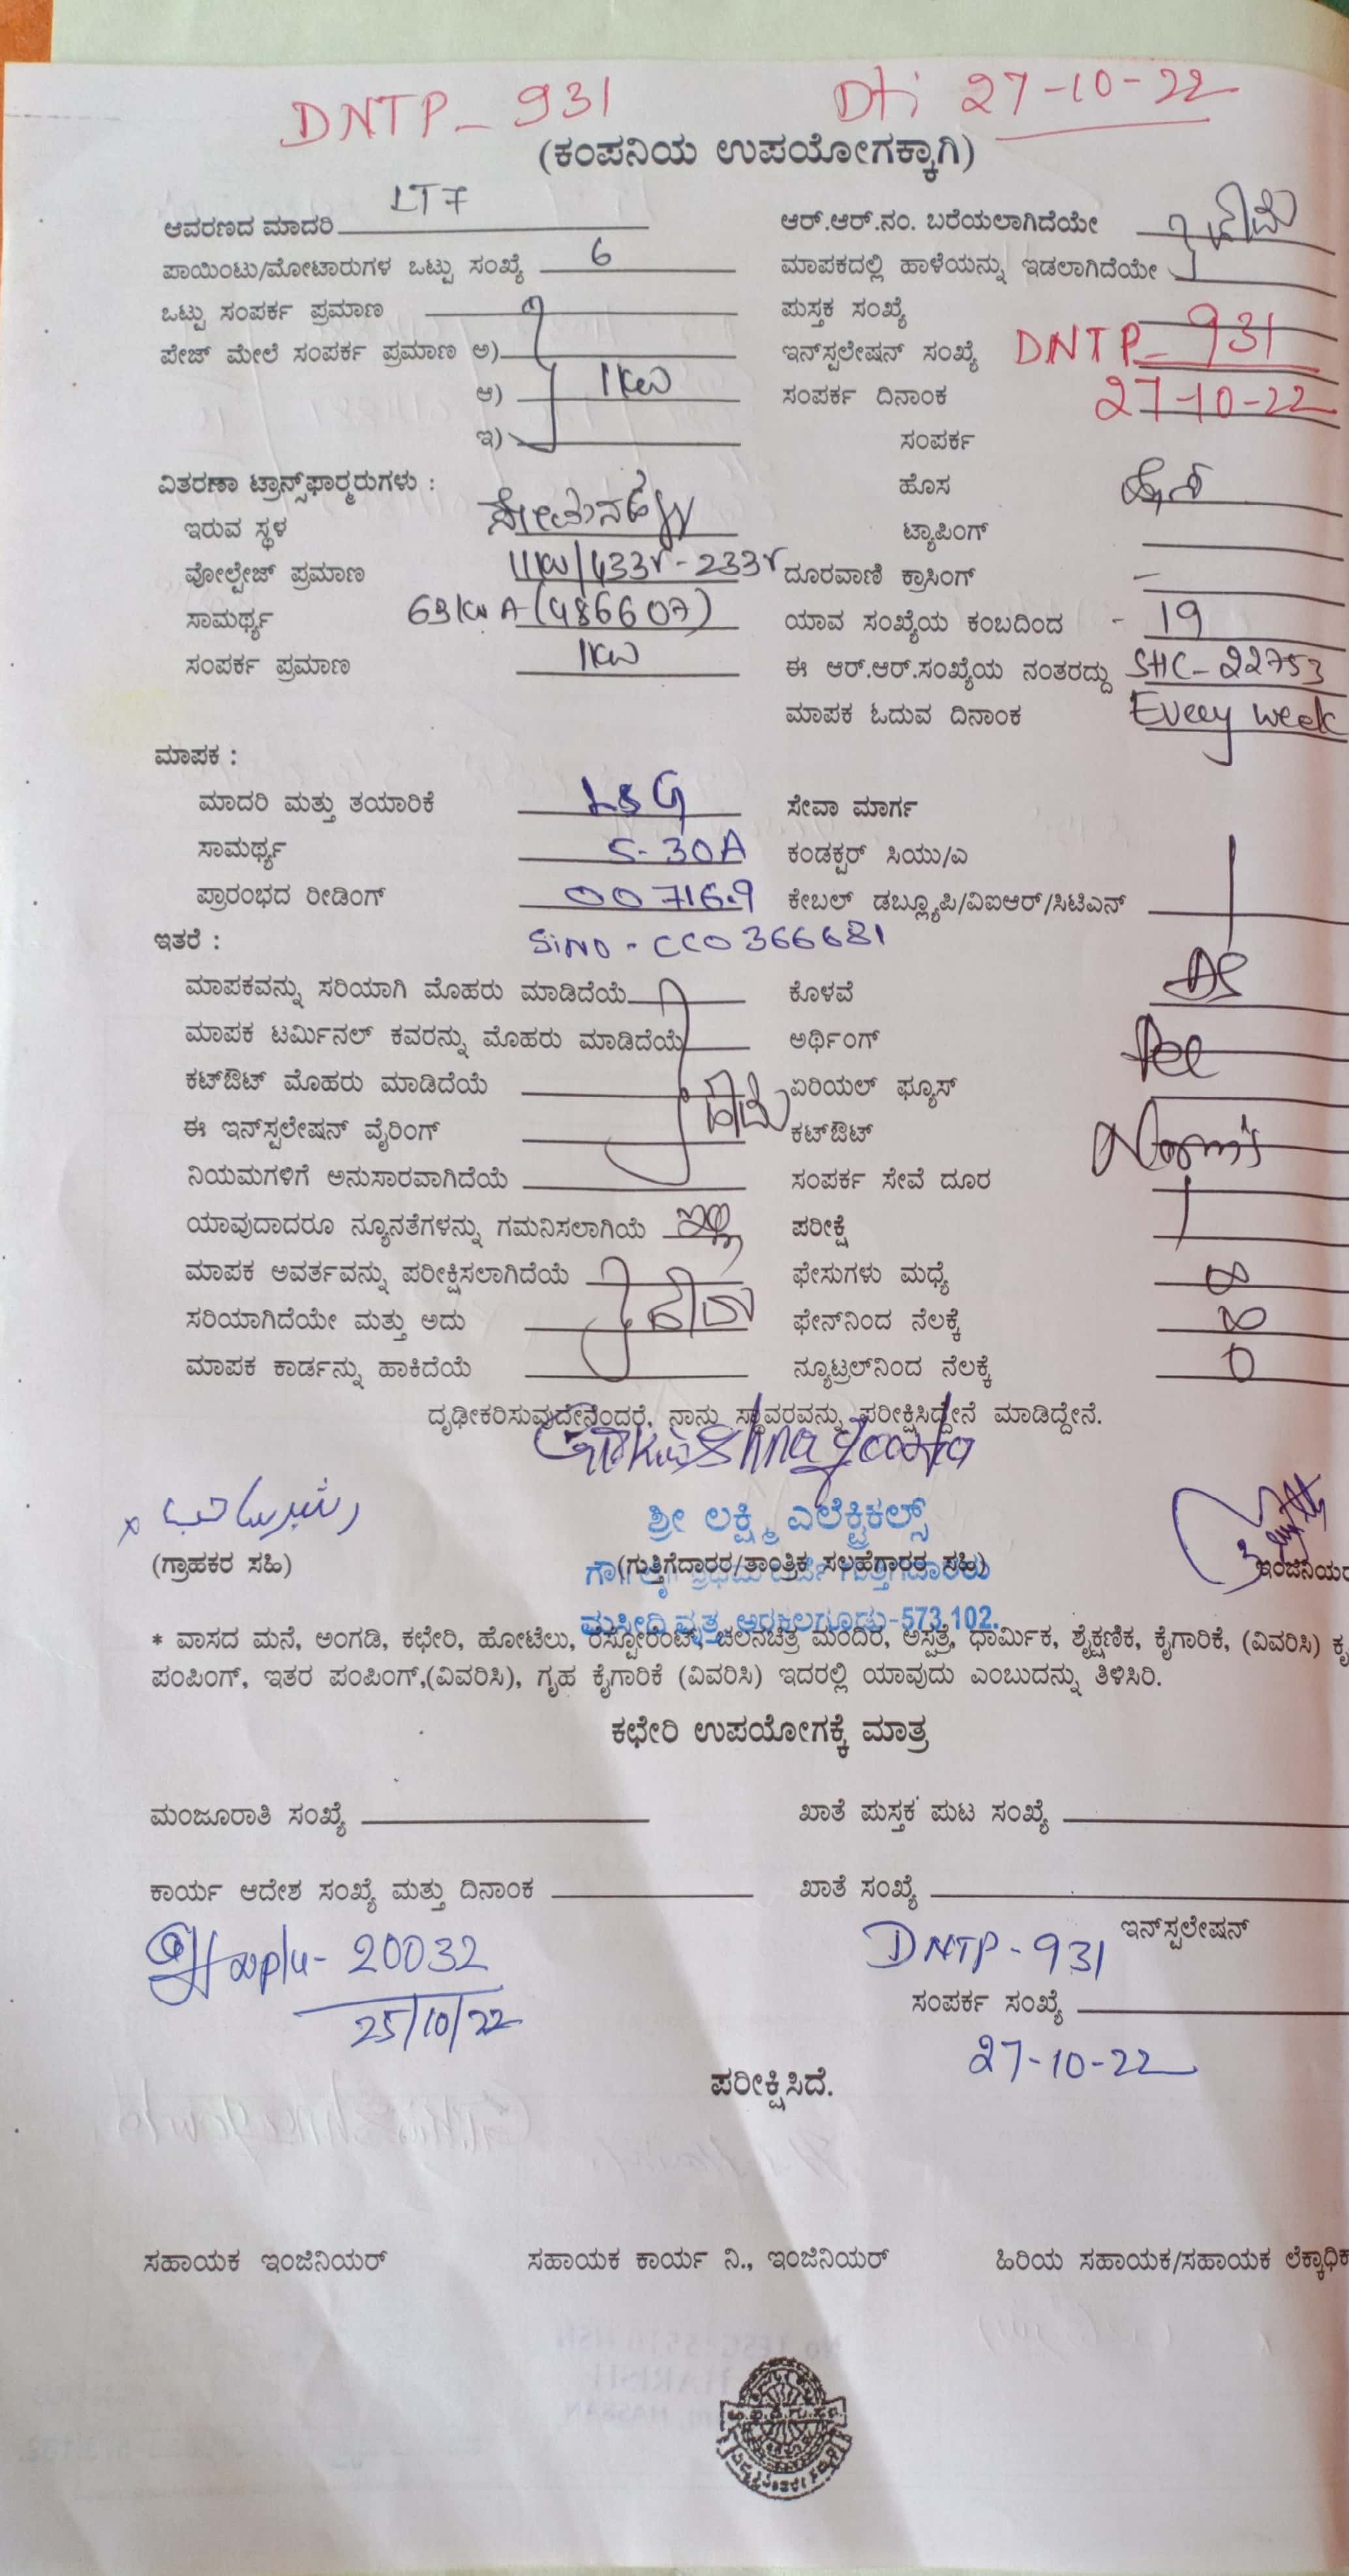 DNTP - 931 Dt: 27-10-22
(ಕಂಪನಿಯ ಉಪಯೋಗಕ್ಕಾಗಿ)
ಆವರಣದ ಮಾದರಿ LT7 ಆರ್.ಆರ್.ನಂ. ಬರೆಯಲಾಗಿದೆಯೇ ಹೌದು
ಪಾಯಿಂಟು/ಮೋಟಾರುಗಳ ಒಟ್ಟು ಸಂಖ್ಯೆ 6 ಮಾಪಕದಲ್ಲಿ ಹಾಳೆಯನ್ನು ಇಡಲಾಗಿದೆಯೇ
ಒಟ್ಟು ಸಂಪರ್ಕ ಪ್ರಮಾಣ ಪುಸ್ತಕ ಸಂಖ್ಯೆ
ಪೇಜ್ ಮೇಲೆ ಸಂಪರ್ಕ ಪ್ರಮಾಣ ಅ) ಇನ್‌ಸ್ಪಲೇಷನ್ ಸಂಖ್ಯೆ DNTP - 931
ಆ) 1KW ಸಂಪರ್ಕ ದಿನಾಂಕ 27-10-22
ಇ) ಸಂಪರ್ಕ
ವಿತರಣಾ ಟ್ರಾನ್ಸ್‌ಫಾರ್‍ಮರುಗಳು : ಹೊಸ
ಇರುವ ಸ್ಥಳ ಟ್ಯಾಪಿಂಗ್
ವೋಲ್ಟೇಜ್ ಪ್ರಮಾಣ 11KV/433V-233V ದೂರವಾಣಿ ಕ್ರಾಸಿಂಗ್ -
ಸಾಮರ್ಥ್ಯ 63KVA (486607) ಯಾವ ಸಂಖ್ಯೆಯ ಕಂಬದಿಂದ - 19
ಸಂಪರ್ಕ ಪ್ರಮಾಣ 1KW ಈ ಆರ್.ಆರ್.ಸಂಖ್ಯೆಯ ನಂತರದ್ದು SHC-22753
ಮಾಪಕ ಓದುವ ದಿನಾಂಕ Every week
ಮಾಪಕ :
ಮಾದರಿ ಮತ್ತು ತಯಾರಿಕೆ L&G ಸೇವಾ ಮಾರ್ಗ
ಸಾಮರ್ಥ್ಯ 5-30A ಕಂಡಕ್ಟರ್ ಸಿಯು/ಎ
ಪ್ರಾರಂಭದ ರೀಡಿಂಗ್ 00716.9 ಕೇಬಲ್ ಡಬ್ಲ್ಯೂಪಿ/ವಿಐಆರ್/ಸಿಟಿಎನ್
ಇತರೆ : SiNO - CCO366681
ಮಾಪಕವನ್ನು ಸರಿಯಾಗಿ ಮೊಹರು ಮಾಡಿದೆಯೆ ಕೊಳವೆ AS
ಮಾಪಕ ಟರ್ಮಿನಲ್ ಕವರನ್ನು ಮೊಹರು ಮಾಡಿದೆಯೆ ಅರ್ಥಿಂಗ್ Per
ಕಟ್‌ಔಟ್ ಮೊಹರು ಮಾಡಿದೆಯೆ ಹೌದು ಏರಿಯಲ್ ಫ್ಯೂಸ್
ಈ ಇನ್‌ಸ್ಪಲೇಷನ್ ವೈರಿಂಗ್ ಕಟ್‌ಔಟ್ Norm's
ನಿಯಮಗಳಿಗೆ ಅನುಸಾರವಾಗಿದೆಯೆ ಸಂಪರ್ಕ ಸೇವೆ ದೂರ
ಯಾವುದಾದರೂ ನ್ಯೂನತೆಗಳನ್ನು ಗಮನಿಸಲಾಗಿಯೆ ಇಲ್ಲ ಪರೀಕ್ಷೆ
ಮಾಪಕ ಅವರ್ತವನ್ನು ಪರೀಕ್ಷಿಸಲಾಗಿದೆಯೆ ಫೇಸುಗಳು ಮಧ್ಯೆ ∞
ಸರಿಯಾಗಿದೆಯೇ ಮತ್ತು ಅದು ಹೌದು ಫೇನ್‌ನಿಂದ ನೆಲಕ್ಕೆ ∞
ಮಾಪಕ ಕಾರ್ಡನ್ನು ಹಾಕಿದೆಯೆ ನ್ಯೂಟ್ರಲ್‌ನಿಂದ ನೆಲಕ್ಕೆ 0
ದೃಢೀಕರಿಸುವುದೇನೆಂದರೆ, ನಾನು ಸ್ಥಾವರವನ್ನು ಪರೀಕ್ಷಿಸಿದ್ದೇನೆ ಮಾಡಿದ್ದೇನೆ.
ಶ್ರೀ ಲಕ್ಷ್ಮಿ ಎಲೆಕ್ಟ್ರಿಕಲ್ಸ್
(ಗ್ರಾಹಕರ ಸಹಿ) (ಗುತ್ತಿಗೆದಾರರ/ತಾಂತ್ರಿಕ ಸಲಹೆಗಾರರ ಸಹಿ) ಇಂಜಿನಿಯರ
ಮಸೀದಿ ವೃತ್ತ, ಅರಕಲಗೂಡು-573 102.
* ವಾಸದ ಮನೆ, ಅಂಗಡಿ, ಕಛೇರಿ, ಹೋಟೆಲು, ರೆಸ್ಟೋರೆಂಟ್, ಚಲನಚಿತ್ರ ಮಂದಿರ, ಅಸ್ಪತ್ರೆ, ಧಾರ್ಮಿಕ, ಶೈಕ್ಷಣಿಕ, ಕೈಗಾರಿಕೆ, (ವಿವರಿಸಿ) ಕೃ
ಪಂಪಿಂಗ್, ಇತರ ಪಂಪಿಂಗ್,(ವಿವರಿಸಿ), ಗೃಹ ಕೈಗಾರಿಕೆ (ವಿವರಿಸಿ) ಇದರಲ್ಲಿ ಯಾವುದು ಎಂಬುದನ್ನು ತಿಳಿಸಿರಿ.
ಕಛೇರಿ ಉಪಯೋಗಕ್ಕೆ ಮಾತ್ರ
ಮಂಜೂರಾತಿ ಸಂಖ್ಯೆ ಖಾತೆ ಪುಸ್ತಕ ಪುಟ ಸಂಖ್ಯೆ
ಕಾರ್ಯ ಆದೇಶ ಸಂಖ್ಯೆ ಮತ್ತು ದಿನಾಂಕ ಖಾತೆ ಸಂಖ್ಯೆ
20032 DNTP - 931 ಇನ್‌ಸ್ಪಲೇಷನ್
25/10/22 ಸಂಪರ್ಕ ಸಂಖ್ಯೆ
27-10-22
ಪರೀಕ್ಷಿಸಿದೆ.
ಸಹಾಯಕ ಇಂಜಿನಿಯರ್ ಸಹಾಯಕ ಕಾರ್ಯ ನಿ., ಇಂಜಿನಿಯರ್ ಹಿರಿಯ ಸಹಾಯಕ/ಸಹಾಯಕ ಲೆಕ್ಕಾಧಿಕ